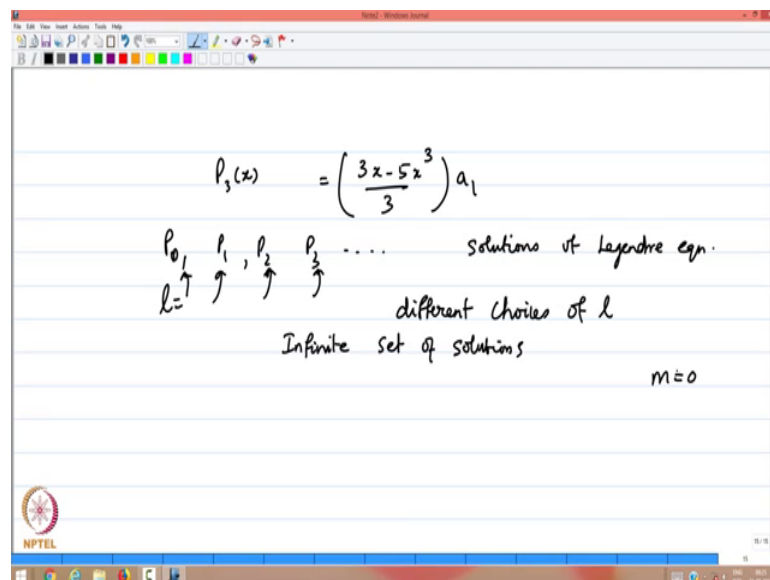 Note2 - Windows Journal
File Edit View Insert Actions Tools Help
B I
P₃(x) = ( (3x - 5x³) / 3 ) a₁
P₀, P₁, P₂ P₃ .... Solutions of Legendre eqn.
l=
different choices of l
Infinite set of solutions
m=0
NPTEL
15/15
15